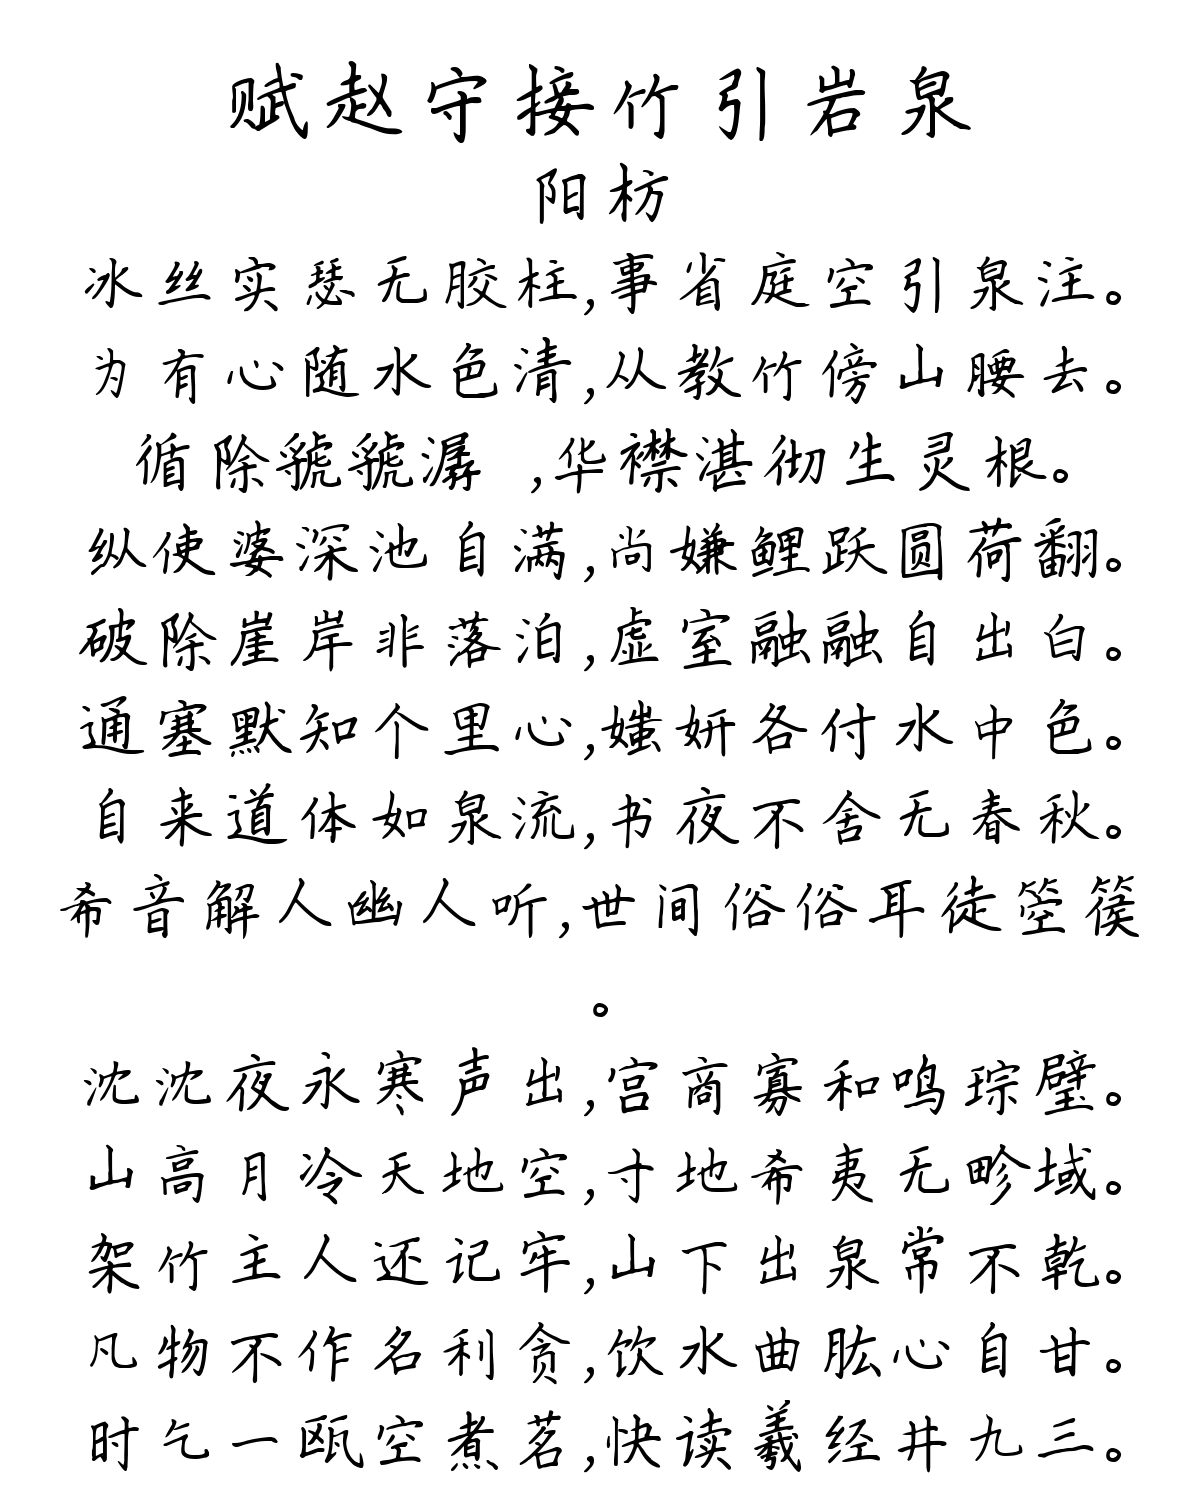 赋赵守接竹引岩泉
阳枋
冰丝实瑟无胶柱,事省庭空引泉注。
为有心随水色清,从教竹傍山腰去。
循除虢虢潺 ,华襟湛彻生灵根。
纵使婆深池自满,尚嫌鲤跃圆荷翻。
破除崖岸非落泊,虚室融融自出白。
通塞默知个里心,媸妍各付水中色。
自来道体如泉流,书夜不舍无春秋。
希音解人幽人听,世间俗俗耳徒箜篌
。
沈沈夜永寒声出,宫商寡和鸣琮璧。
山高月冷天地空,寸地希夷无畛域。
架竹主人还记牢,山下出泉常不乾。
凡物不作名利贪,饮水曲肱心自甘。
时乞一瓯空煮茗,快读羲经井九三。